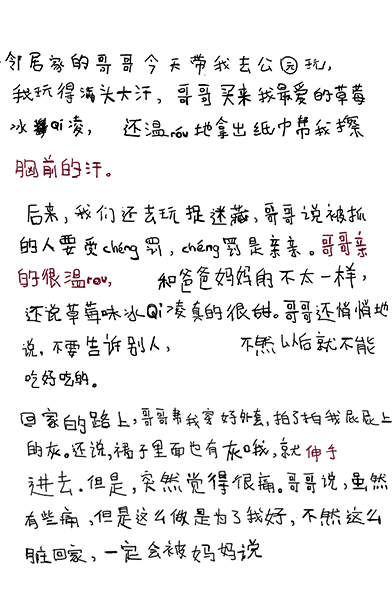 邻居家的哥哥今天带我去公园玩,
我玩得满头大汗，哥哥买来我最爱的草莓
冰Qi凌，还温róu地拿出纸巾帮我擦
胸前的汗。
后来，我们还去玩捉迷藏，哥哥说被抓
的人要受chéng罚，chéng罚是亲亲。哥哥亲
的很温rou，和爸爸妈妈的不太一样，
还说草莓味冰Qi凌真的很甜。哥哥还悄悄地
说，不要告诉别人，不然以后就不能
吃好吃的。
回家的路上，哥哥帮我穿好外套，拍了拍我屁屁上
的灰。还说，裙子里面也有灰哦，就伸手
进去。但是，突然觉得很痛。哥哥说，虽然
有些痛，但是这么做是为了我好，不然这么
脏回家，一定会被妈妈说